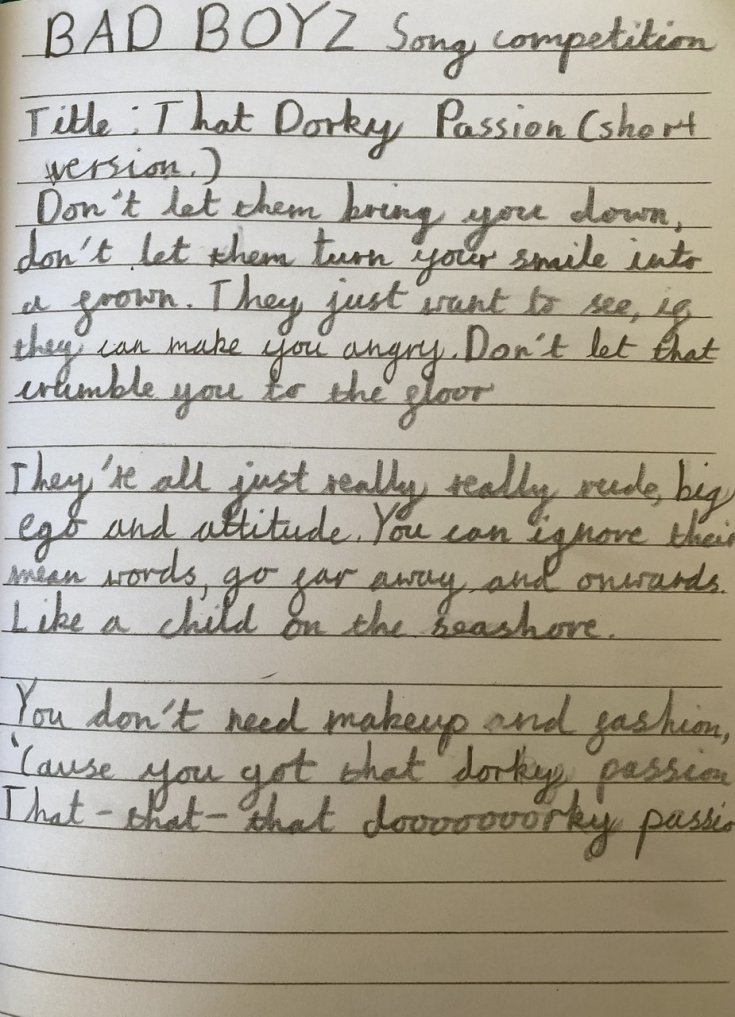 BAD BOYZ Song competition
Title : That Dorky Passion (short
version.)
Don't let them bring you down,
don't let them turn your smile into
a frown. They just want to see, if
they can make you angry. Don't let that
crumble you to the floor
They're all just really really rude, big
ego and attitude. You can ignore their
mean words, go far away and onwards.
Like a child on the seashore.
You don't need makeup and fashion,
'Cause you got that dorky passion
That-that-that dooooooorky passio